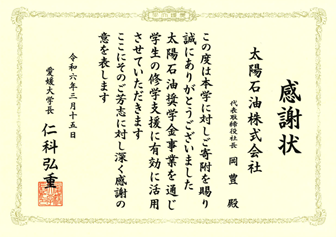 感謝状
太陽石油株式会社
代表取締役社長 岡 豊 殿
この度は本学に対しご寄附を賜り
誠にありがとうございました
太陽石油奨学金事業を通じ
学生の修学支援に有効に活用
させていただきます
ここにそのご芳志に対し深く感謝の
意を表します
令和六年三月十五日
愛媛大学長 仁科弘重